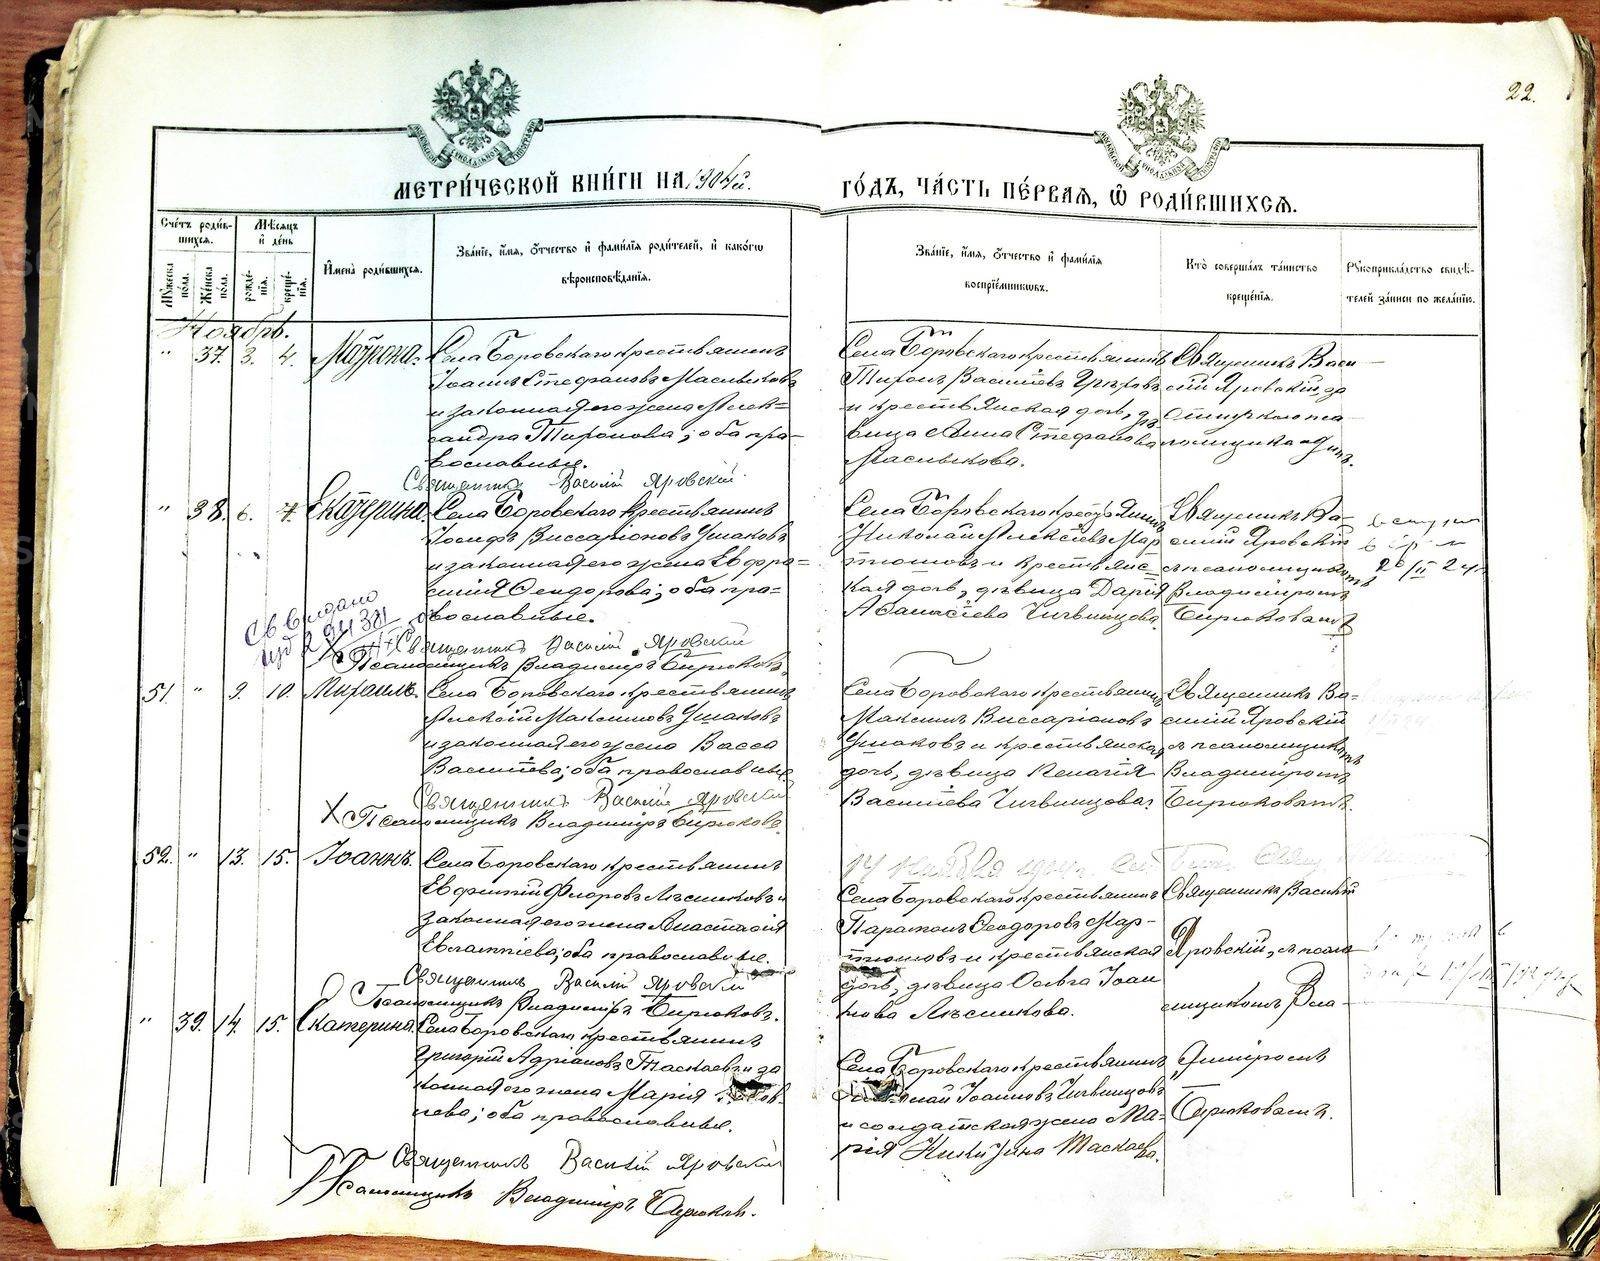 22.
МЕТРИ́ЧЕСКОЙ КНИ́ГИ НА 1904й.
ГО́ДЪ, ЧА́СТЬ ПЕ́РВАЯ, Ѿ РОДИ́ВШИХСЯ.
Сче́тъ роди́в-
шихся.
Му́жеска по́ла.
Же́нска по́ла.
Мѣ́сяцъ
и҆ де́нь
рожде́-
нїя.
креще́-
нїя.
И҆мена̀ роди́вшихся.
Зва́нїе, и҆́мя, ѻ҆́тчество и҆ фами́лїя роди́телей, и҆ како́гѡ
вѣроисповѣ́данїя.
Зва́нїе, и҆́мя, ѻ҆́тчество и҆ фами́лїя
воспрїе́мникѡвъ.
Кто̀ соверша́лъ та́инство
креще́нїя.
Рꙋкоприкла́дство свидѣ́-
телей за́писи по жела́нїю.
Ноябрь.
" 37. 3. 4. Маѵрона.
Села Боровскаго крестьянинъ
Іоаннъ Стефановъ Масльковъ
и законная его жена Алек=
сандра Тиронова; оба пра-
вославные.
Священникъ Василій Яровскій
Села Боровскаго крестьянинъ
Тиронъ Васильевъ
и крестьянская дочь, дѣ
вица Анна Стефанова
Маслькова.
Священникъ Васи
лій Яровскій, за
ломщика одинъ.
" 38. 6. 7. Екатерина.
Села Боровскаго крестьянинъ
Іосифъ Виссаріоновъ Ушаковъ
и законная его жена Евфра=
синія Ѳеодорова; оба пра=
вославные.
Священникъ Василій Яровскій
Псаломщикъ Владиміръ Бирюковъ.
Села Боровскаго крестьянинъ
Николай Алексѣевъ Мар
тюшовъ и крестьянс=
кая дочь, дѣвица Дарія
Аѳанасіева Чигвинцова.
Священникъ Ва=
силій Яровскій
съ псаломщикомъ
Владиміромъ
Бирюковымъ
51. " 9. 10. Михаилъ.
Села Боровскаго крестьянинъ
Алексій Максимовъ Ушаковъ
и законная его жена Васса
Васильева; оба православные.
Священникъ Василій Яровскій
Псаломщикъ Владиміръ Бирюковъ.
Села Боровскаго крестьянинъ
Максимъ Виссаріоновъ
Ушаковъ и крестьянская
дочь, дѣвица Пелагія
Васильева Чигвинцова.
Священникъ Ва=
силій Яровскій
съ псаломщикомъ
Владиміромъ
Бирюковымъ.
52. " 13. 15. Іоаннъ.
Села Боровскаго крестьянинъ
Евфимій Флоровъ Лѣсниковъ и
законная его жена Анастасія
Евлампіева; оба православные.
Священникъ Василій Яровскій
Псаломщикъ Владиміръ Бирюковъ.
Села Боровскаго крестьянинъ
Парамонъ Ѳеодоровъ Мар-
тюшовъ и крестьянская
дочь, дѣвица Ольга Іоан
нова Лѣсникова.
Священникъ Василій
Яровскій, съ псало
мщикомъ Вла-
диміромъ
Бирюковымъ.
" 39. 14. 15. Екатерина.
Села Боровскаго крестьянинъ
Григорій Адріановъ Таскаевъ и за
конная его жена Марія
лева; оба православные.
Священникъ Василій Яровскій
Псаломщикъ Владиміръ Бирюковъ.
Села Боровскаго крестьянинъ
Іоанновъ Чигвинцовъ
и солдатская жена Ма-
рія Никитина Таскаева.